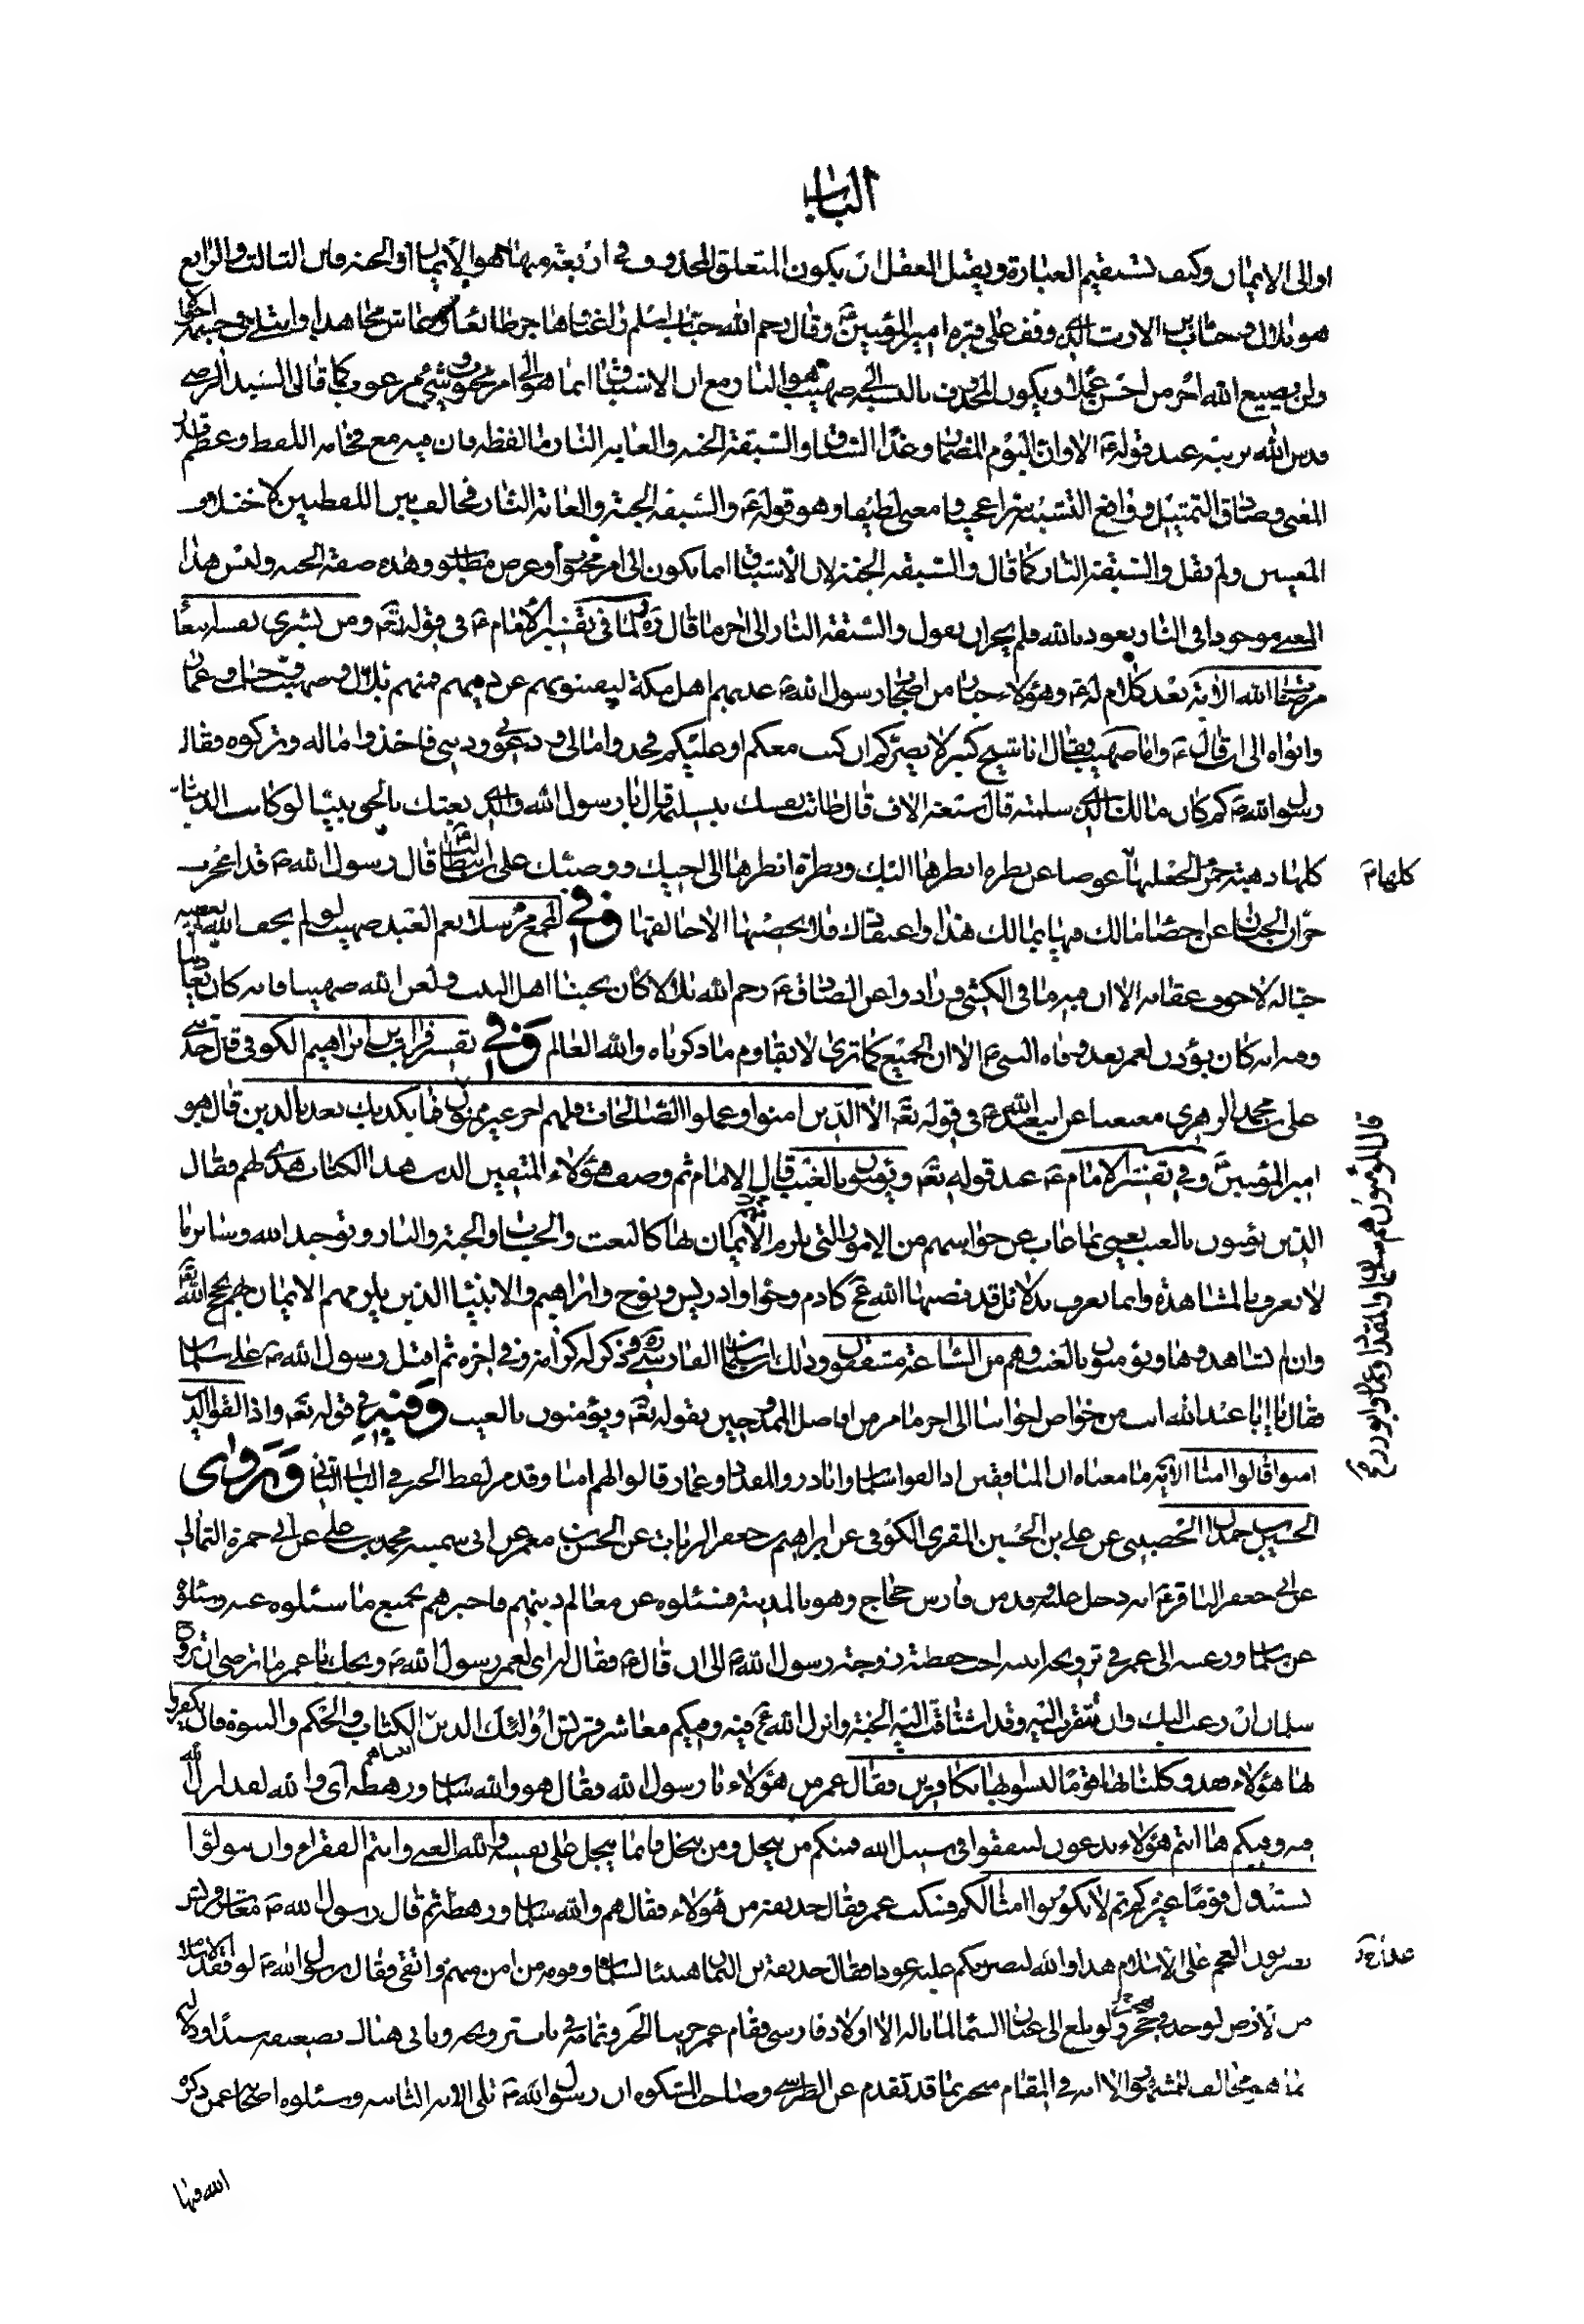 الباب
او الى الايمان وكيف تستقيم العبارة ويقبل العقل ان يكون المتعلق المحذوف في اربعة منها هو الايمان او الجنه وفى الثالث والرابع
هو بلال و خباب بن الارت الذى وقف على قبره امير المؤمنين ع وقال رحم الله خباب اسلم راغبا وهاجر طائعا وعاش مجاهدا وابتلى في جسمه احوالا
ولن يضيع الله اجر من احسن عملا ويكون المحذوف بالنسبة الى صهيب هو النار مع ان الاستباق انما هو الى امر محبوب وشئ مرغوب كما قال السيد الرضى
قدس الله تربته عند قوله ع الا وان اليوم المضمار وغدا السباق والسبقة الجنه والغاية النار ما لفظه فان فيه مع فخامة اللفظ وعظم قدر
المعنى وصادق التمثيل وواقع التشبيه سرا عجيبا ومعنى لطيفا وهو قوله ع والسبقة الجنة والغاية النار فخالف بين اللفظين لاختلاف
المعنيين ولم يقل والسبقة النار كما قال والسبقة الجنة لان الاستباق انما يكون الى امر محبوب او غرض مطلوب وهذه صفة الجنه وليس هذا
المعنى موجودا في النار نعوذ بالله فلم يجز ان يقول والسبقة النار الى اخر ما قال ره كما في تفسير الامام ع في قوله تعه ومن يشرى نفسه ابتغاء
مرضات الله الاية بعد كلام له ع وهؤلاء خيار من اصحاب رسول الله ص عذبهم اهل مكة ليفتنوهم عن دينهم منهم بلال وصهيب وخباب وعمار
وابواه الى ان قال ع واما صهيب فقال انا شيخ كبير لا يضركم ان كنت معكم او عليكم فخذوا مالى ودعونى وديني فاخذوا ماله وتركوه فقال
رسول الله ص كم كان مالك الذى سلمته قال سبعة الاف قال طابت نفسك بتسليمه قال يا رسول الله والذى بعثك بالحق نبيا لو كانت الدنيا
كلها ذهبة حمراء لجعلتها عوضا عن نظرة انظرها اليك ونظرة انظرها الى اخيك ووصيك على بن ابيطالب ع قال رسول الله ص قد اعجزت
كلها م
خزان الجنان عن احصاء مالك فيها بمالك هذا واعتقادك فلا يحصيها الا خالقها وفي المجمع مرسلا نعم العبد صهيب لو لم يخف الله لم يعصه
الا ان فيه ما في الكشى وزادوا عن الصادق ع رحم الله بلالا كان يحبنا اهل البيت ولعن الله صهيبا فانه كان يعادينا
ومنه انه كان يؤذن لعمر بعد وفاه النبى ص الا ان الجميع كما ترى لا يقاوم ما ذكرناه والله العالم وفي تفسير فرات بن ابراهيم الكوفى قال حدثنى
على بن محمد الزهرى معنعنا عن ابيعبد الله ع في قوله تعه الا الذين امنوا وعملوا الصالحات فلهم اجر غير ممنون فما يكذبك بعد بالدين قال هو
امير المؤمنين ع وفي تفسير الامام ع عند قوله تعه ويؤمنون بالغيب قال الامام ثم وصف هؤلاء المتقين الذين هذا الكتاب هدى لهم فقال
الذين يؤمنون بالغيب يعنى بما غاب عن حواسهم من الامور التى يلزمهم الايمان بها كالبعث والحساب والجنة والنار وتوحيد الله وسائر ما
لا يعرف بالمشاهدة وانما يعرف بدلائل قد نصبها الله عج كادم وحوا وادريس ونوح وابراهيم والانبيا الذين يلزمهم الايمان بهم بحجج الله تعه
وان لم يشاهدوها ويؤمنون بالغيب وهم من الساعة مشفقون وذلك ان سلمان الفارسى ره في اخره ثم اقبل رسول الله ص على سلمان
فقال يا ابا عبد الله انت من خواص اخواننا الى اخر ما مر من افاضل الممدوحين بقوله تعه ويؤمنون بالغيب وفيه في قوله تعه واذا لقوا الذين
امنوا قالوا امنا الاية ما معناه ان المنافقين اذا لقوا سلمان وابا ذر والمقداد وعمار قالوا لهم امنا وقد مر لفظ الخبر في الباب الثاني وروى
الحسين بن حمدان الخصيبى عن على بن الحسين المقرى الكوفى عن ابراهيم بن جعفر الزيات عن الحسن بن معمر عن ابى سمينه محمد بن على عن ابى حمزة الثمالى
عن ابى جعفر الباقر ع انه دخل عليه وفد من فارس حجاج وهو بالمدينة فسئلوه عن معالم دينهم فاخبرهم بجميع ما سئلوه عنه وسئلوه
عن سلمان ورغبته الى عمر في تزويجه ابنته اخت حفصة زوجة رسول الله ص الى ان قال ع فقال له اى لعمر رسول الله ص ويحك يا عمر ما ترضى ان تزوج
سلمان ان رغب اليك وان تتقرب اليه وقد اشتاقت اليه الجنة وانزل الله عج فيه وفيكم معاشر قريش اولئك الذين اتيناهم الكتاب والحكم والنبوة فان يكفر
بها هؤلاء فقد وكلنا بها قوما ليسوا بها بكافرين فقال عمر من هؤلاء يا رسول الله فقال هو والله سلمان ورهطه اى والله لقد انزل الله
فيه وفيكم ها انتم هؤلاء تدعون لتنفقوا في سبيل الله فمنكم من يبخل ومن يبخل فانما يبخل على نفسه والله الغنى وانتم الفقراء وان تتولوا
يستبدل قوما غيركم ثم لا يكونوا امثالكم فنكت عمر وقال حذيفة من هؤلاء فقال هم والله سلمان ورهطه ثم قال رسول الله ص معاشر قريش
تضربون العجم على الاسلام هذا والله ليضربنكم عليه عودا فقال حذيفة بن اليمان هنيئا لسلمان وقومه من امن منهم واتقى فقال رسول الله ص لو فقد الاسلام
من الارض لوجد في ولو بلغ الى عنان السماء لما ناله الا اولاد فارس فقام عمر حزينا الخبر وتمامه في باب تزويجه وياتى هناك
الا انه في المقام بما قد تقدم عن الطبرسى وصاحب المشكوه ان رسول الله ص تلى الاية الثانيه وسئلوه اصحابه عمن ذكره
الله فيها
قال المؤمنون هم سلمان والمقداد وعمار وابو ذر